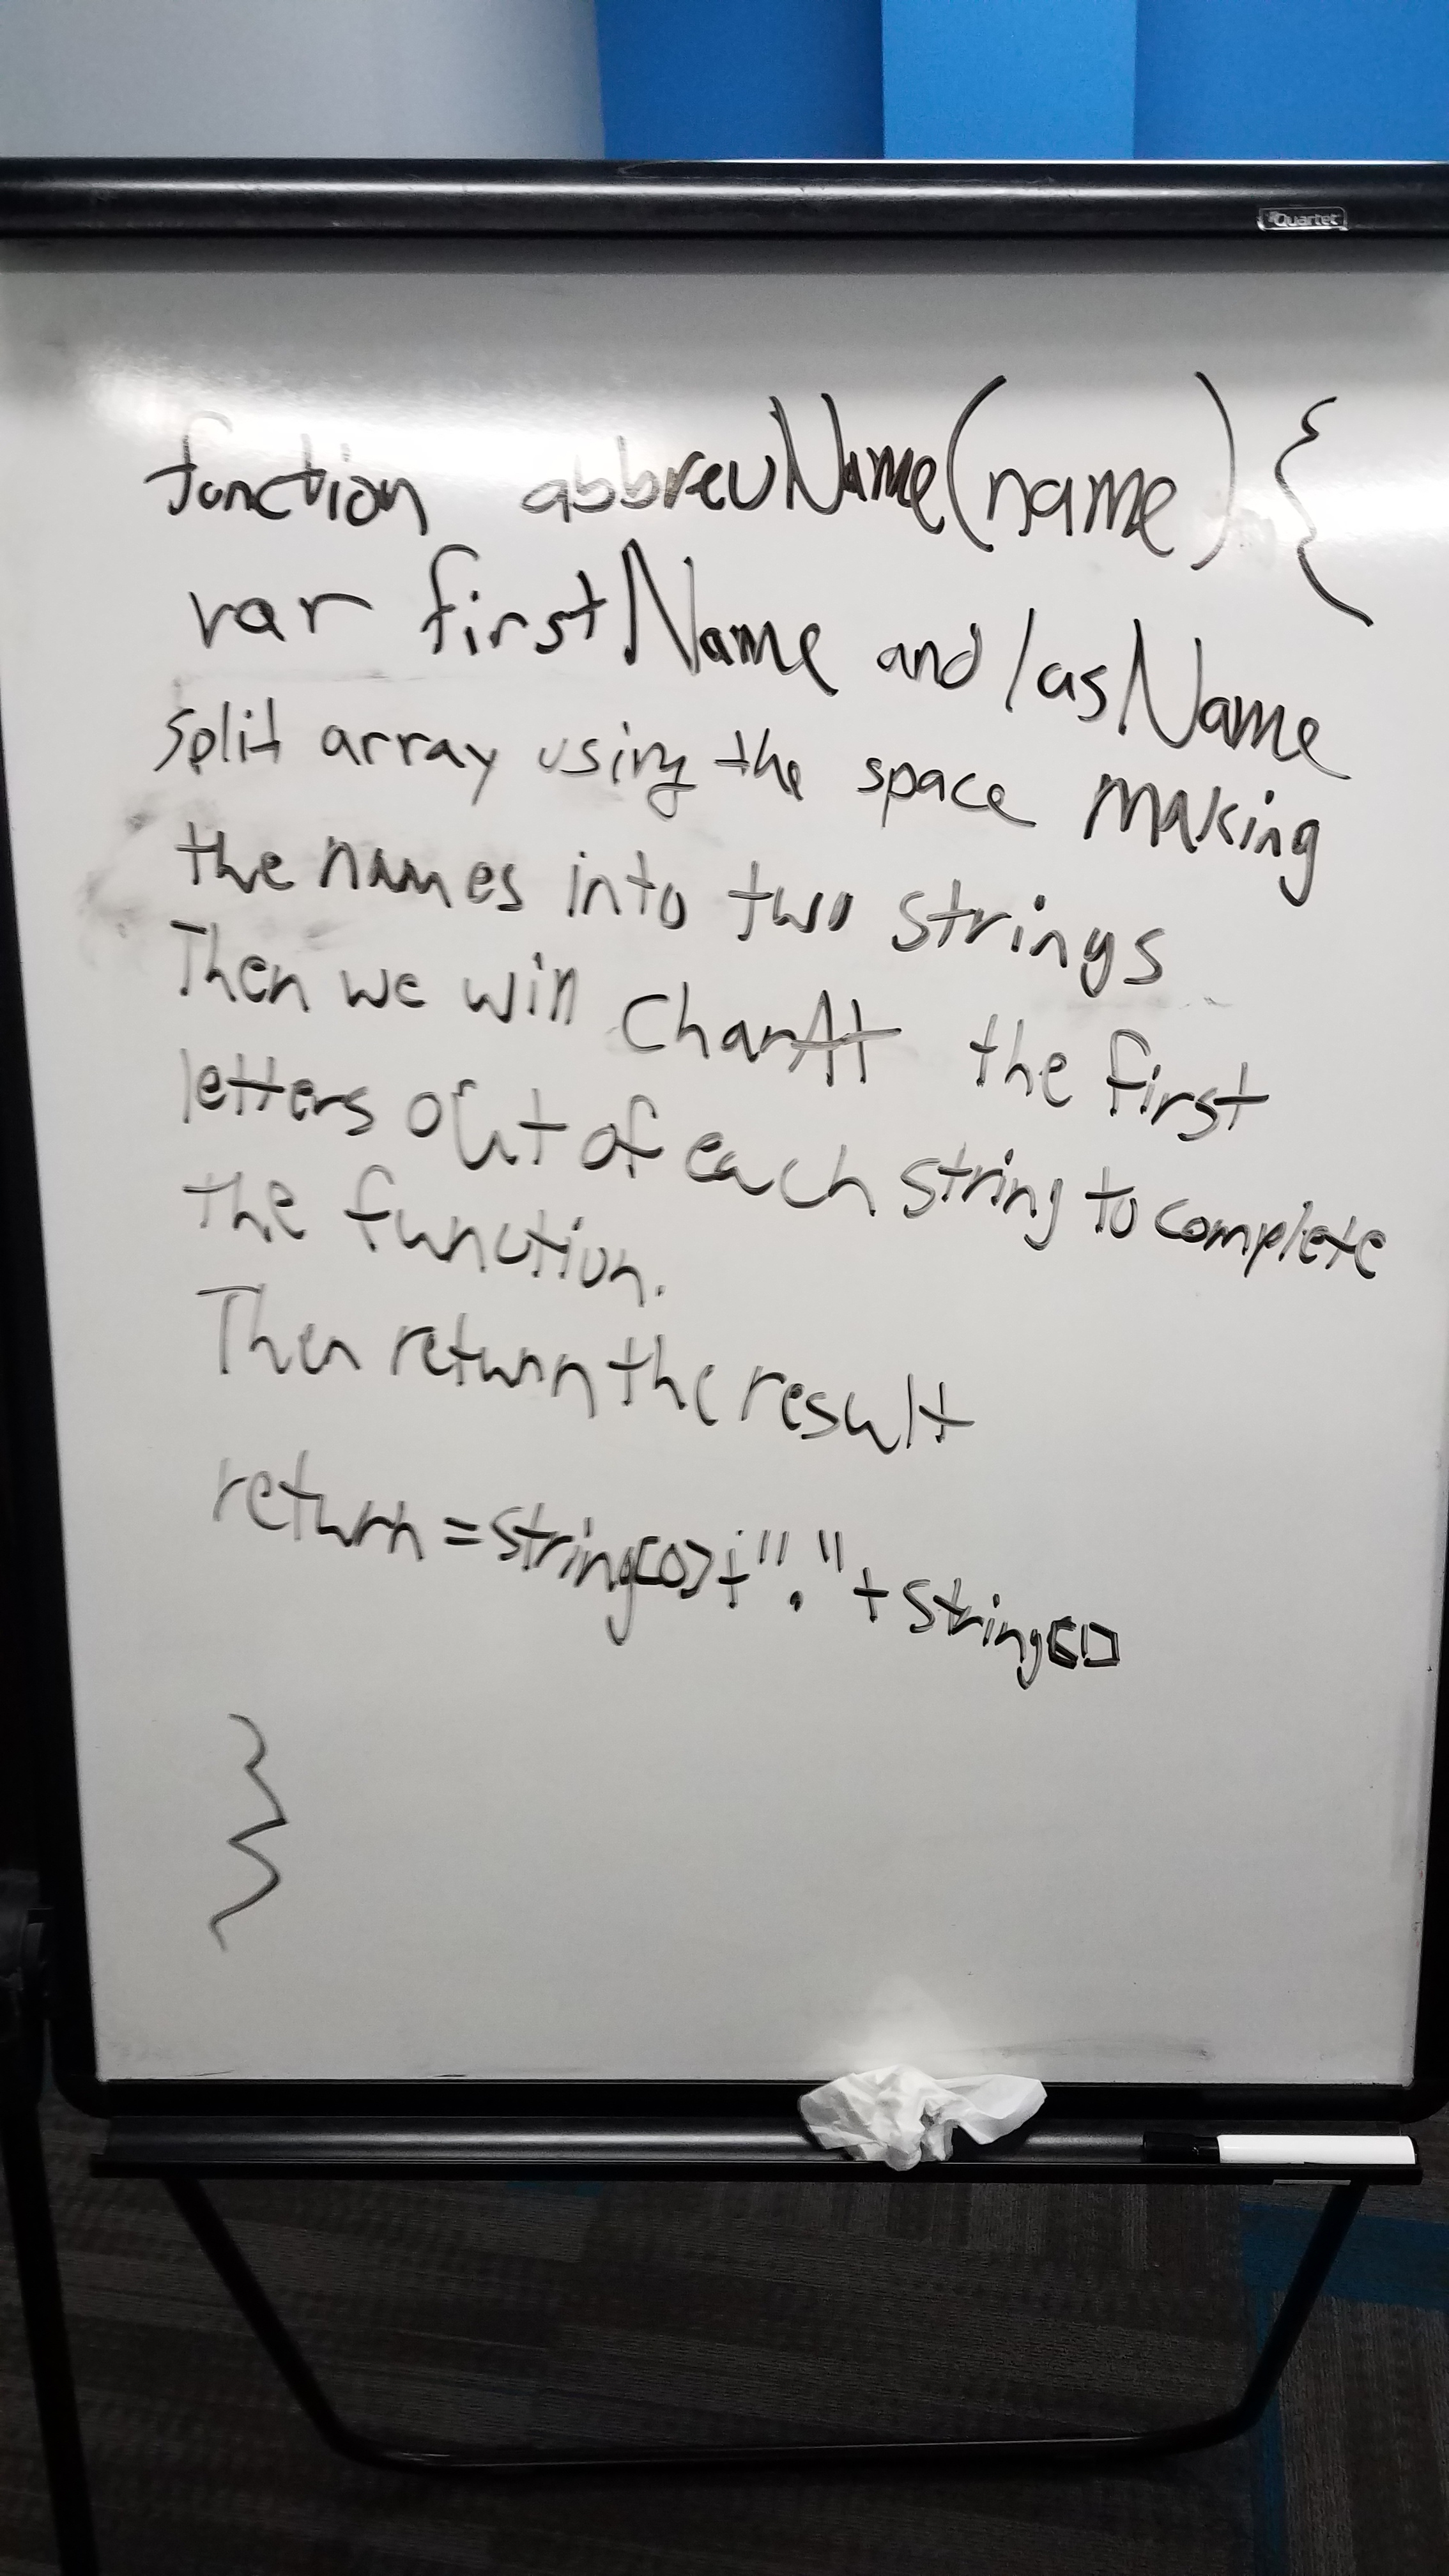 Quartet
function abbrevName(name){
var firstName and lasName
split array using the space making
the names into two strings
Then we will CharAt the first
letters out of each string to complete
the function.
Then return the result
return = string[0] + "." + string[]
}